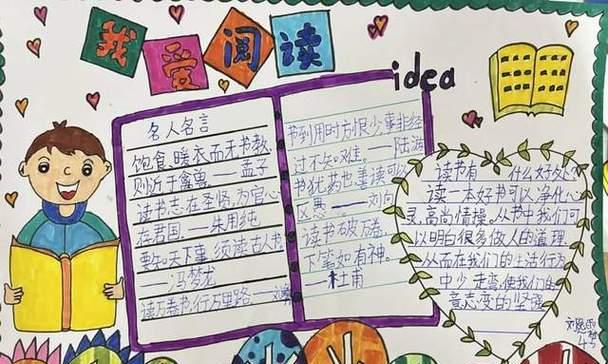 我爱阅读
idea
名人名言
饱食、暖衣而无书教,
则近于禽兽。——孟子
读书志在圣贤,为官心
存君国。——朱用纯
要知天下事,须读古人书
——冯梦龙
读万卷书,行万里路。——刘
书到用时方恨少事非经
过不知难。——陆游
书犹药也善读可以
医愚——刘向
读书破万卷,
下笔如有神。
——杜甫
读书有——什么好处?
读一本好书可以净化心
灵,高尚情操。从书中我们可
以明白很多做人的道理
从而在我们的生活行为
中少走弯,使我们的
意志变的坚强